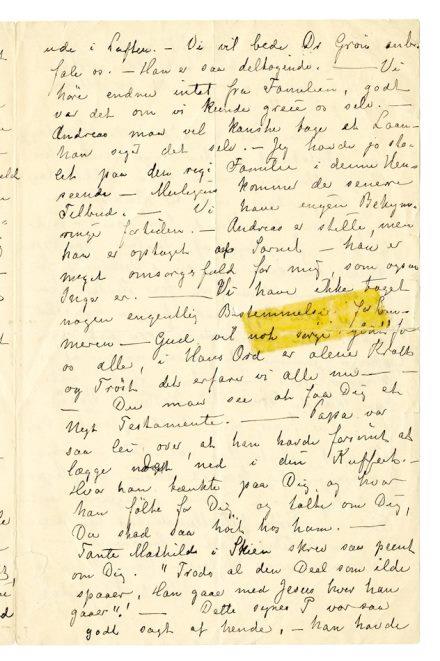 ude i Luften. – Vi vil bede Dr Grøn anbe-
fale os. – Han er saa deltagende. — Vi
høre endnu intet fra Familien, godt
var det om vi kunde greie os selv. —
Andreas maa vel kanske tage et Laan
han sagd det selv. – Jeg havde jo slo-
let paa den rige Familie i denne Hen-
seende – Muligens kommer de senere
Tilbud. — Vi have ingen Bekym-
ringe for tiden. — Andreas er stille, men
han er optaget af Sorret – han er
meget omsorgsfuld for mig, som ogsaa
Inga er. — Vi have ikke taget
nogen egentlig Bestemmelse i
meren – Gud vil nok sørge for
os alle, i Hans Ord er alene Kraft
og Trøst det erfare vi alle nu —
— Du maa see at faa Dig et
Nyt Testamente. — Papa var
saa lei over, at han havde forsømt at
lægge ned i din Kuffert. –
Hvor han tænkte paa Dig og hvor
han følte for Dig, og talte om Dig,
Du stod saa høit hos ham. —
Tante Mathilde i Skien skrev saa pent
om Dig. "Trods al den Deel som ilde
spaaer, Han gaae med Jesus hvor han
gaaer"! — Dette synes P var saa
godt sagt af hende, – han havde